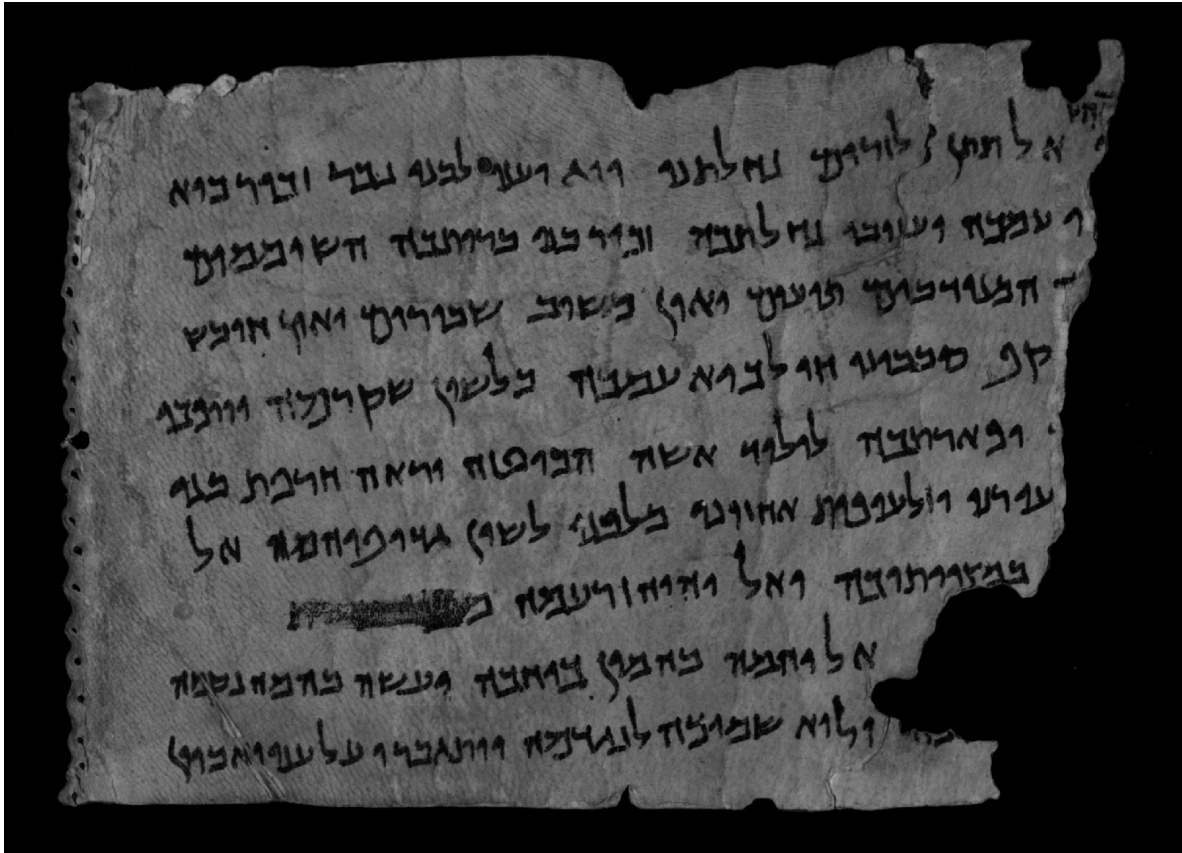 אל תתן לזרים נחלתנו ויגיענו לבני נכר זכור כיא
י עמכה ועזובי נחלתכה זכור בני בריתכה השוממים
המנודבים תועים ואין משיב שבורים ואין חובש
קף סבבונו חילכיא עמכה בלשון שקרמה ויהפכו
ופארתכה לילוד אשה הביטה וראה חרפת בני
עורנו וזלעופות אחזונו מלפני לשון גדופיהמה אל
במצוותיכה ואל יהיה זרעמה מ
אליהמה בהמון כוחכה ועשה מהמה נקמה
ולוא שמוכה לנגדמה ויתגברו על עני ואביון